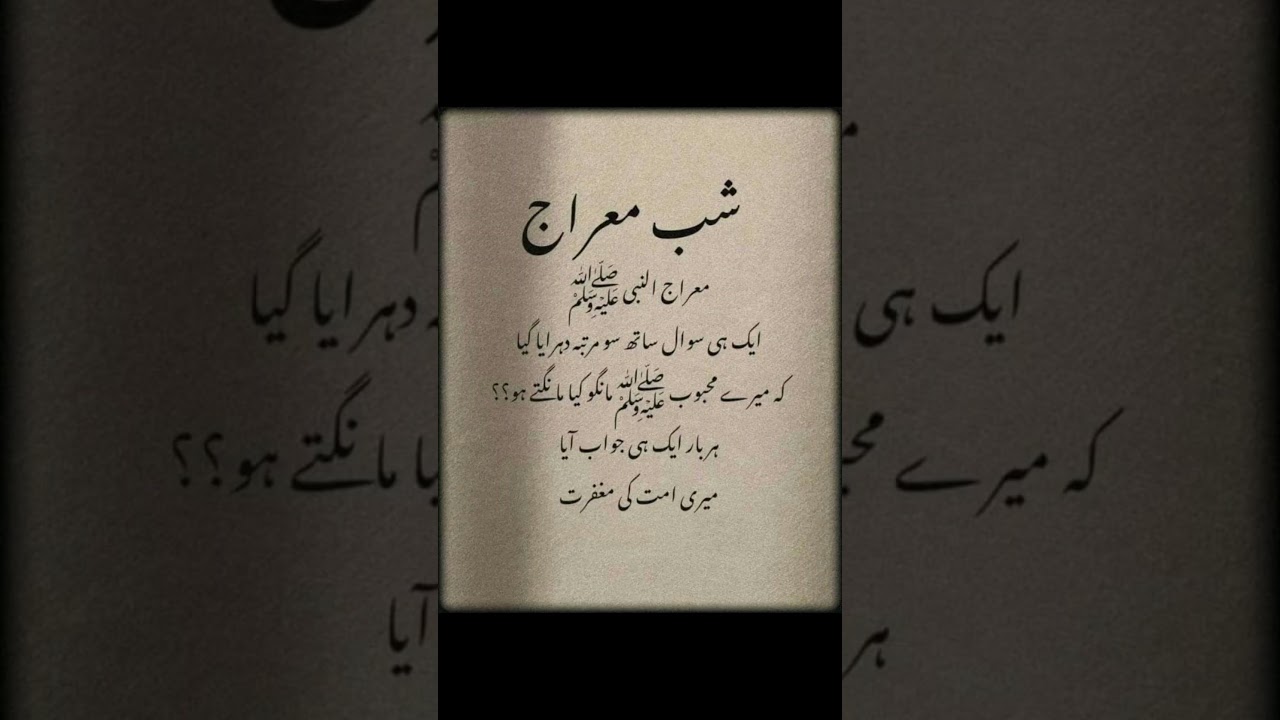 شب معراج
معراج النبی ﷺ
ایک ہی سوال ساتھ سو مرتبہ دہرایا گیا
کہ میرے محبوب ﷺ مانگو کیا مانگتے ہو؟؟
ہر بار ایک ہی جواب آیا
میری امت کی مغفرت